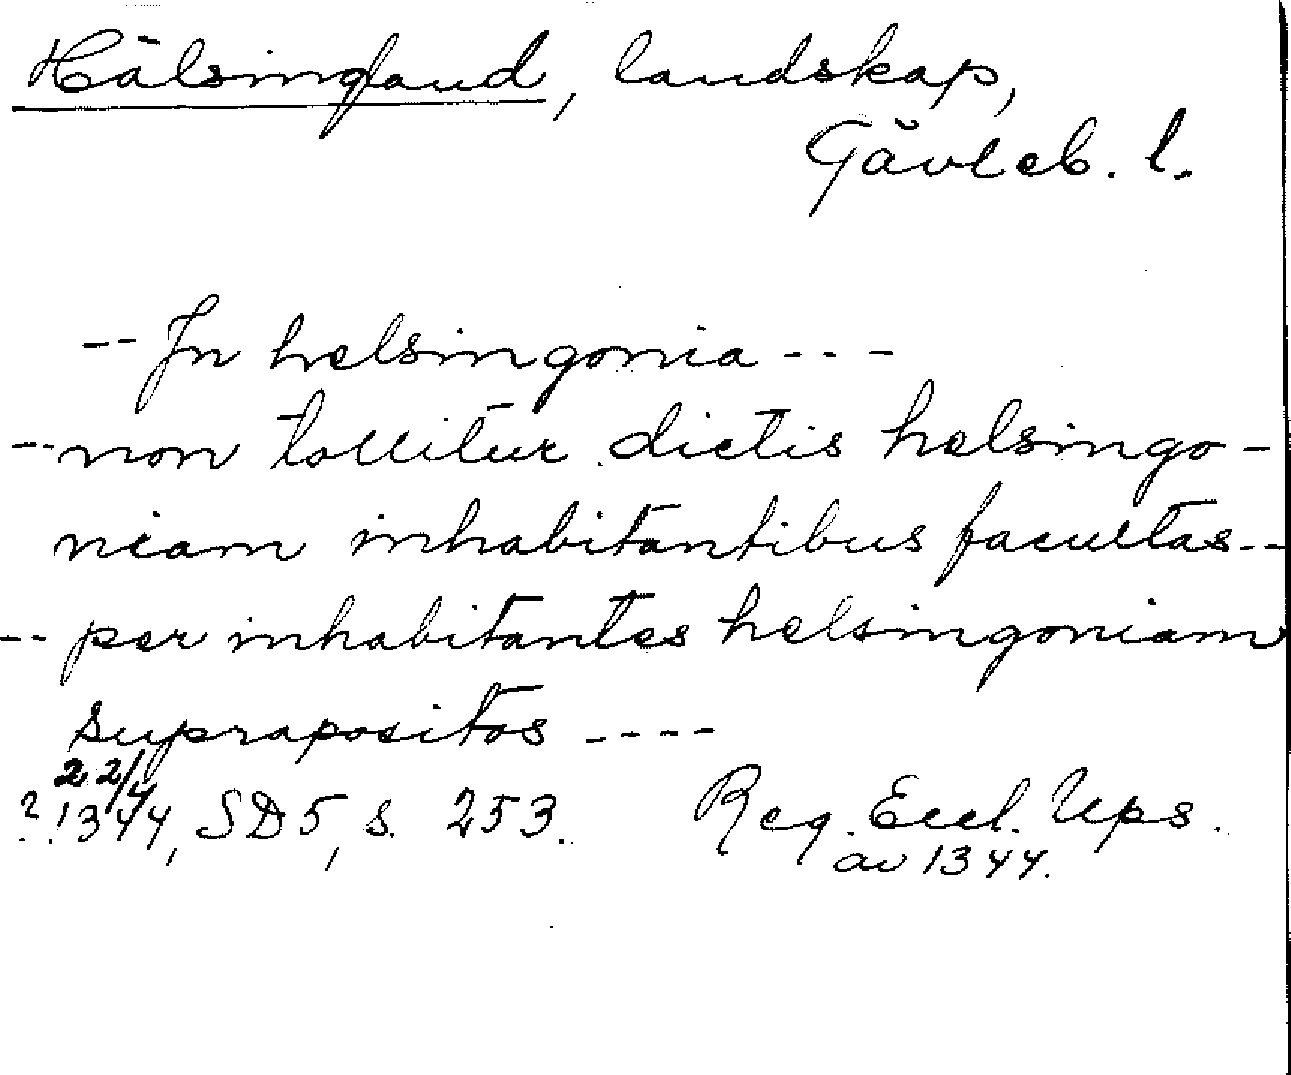 Hälsingland, landskap,
Gävleb. l.
-- In helsingonia ---
-- non tollitur dictis helsingo-
niam inhabitantibus facultas --
-- per inhabitantes helsingoniam
suprapositos ----
22/4
? 1344, SD 5, s. 253. Reg. Eccl. Ups.
av 1344.